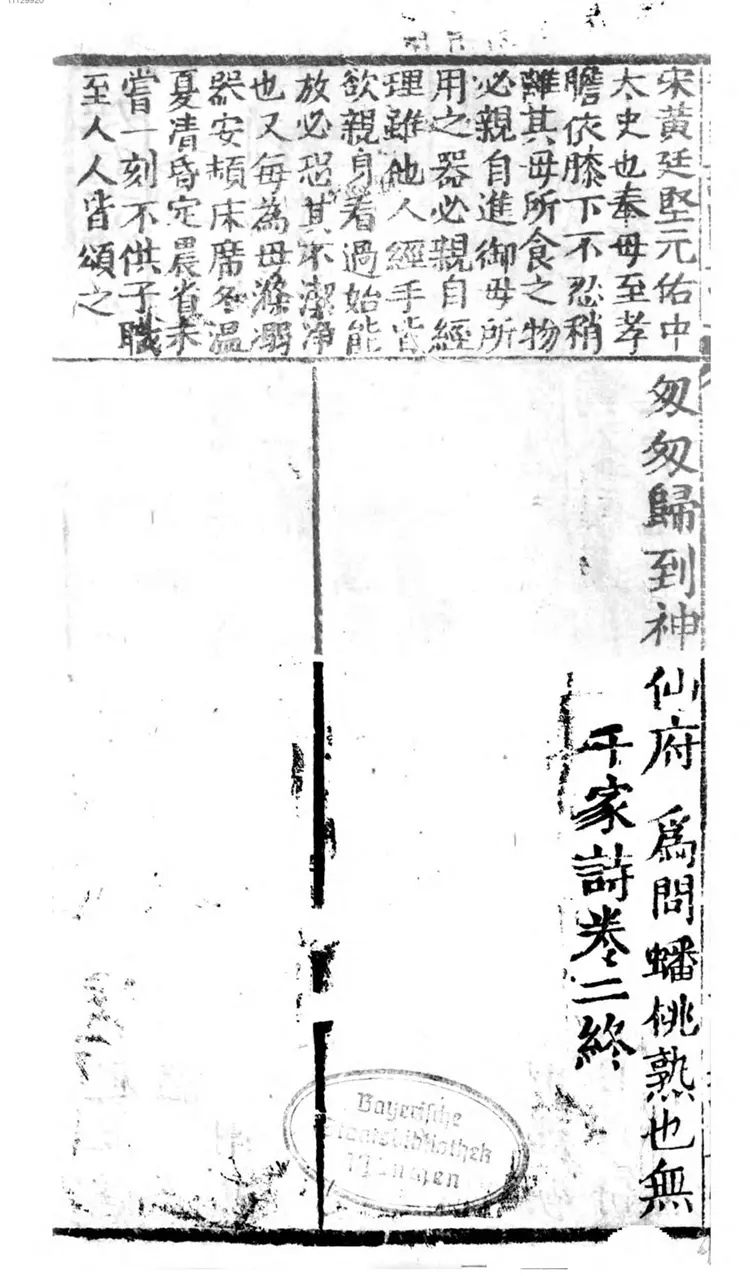 宋黃廷堅元佑中
太史也奉母至孝
膽依膝下不忍稍
離其母所食之物
必親自進御母所
用之器必親自經
理雖他人經手皆
欲親身看過始能
放必恐其不潔净
也又每為母滌溺
器安頓床席冬溫
夏凊昏定晨省未
嘗一刻不供子職
至人人皆頌之
匆匆歸到神仙府 爲問蟠桃熟也無
千家詩卷二終
Bayerische
Staatsbibliothek
München